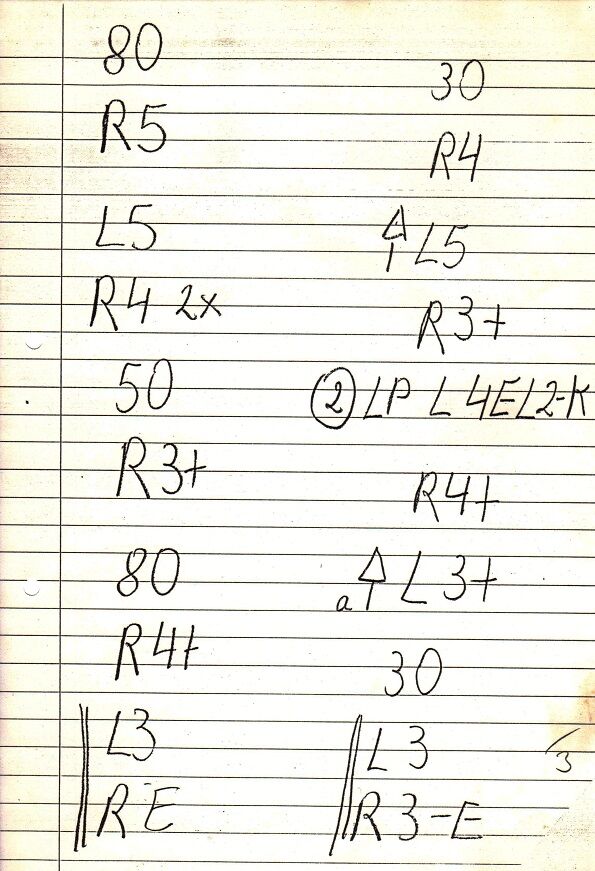 80
R5
L5
R4 2x
50
R3+
80
R4+
L3
R E
30
R4
L5
R3+
2 LP L 4EL2-K
R4+
a L 3+
30
L 3
R 3-E
3